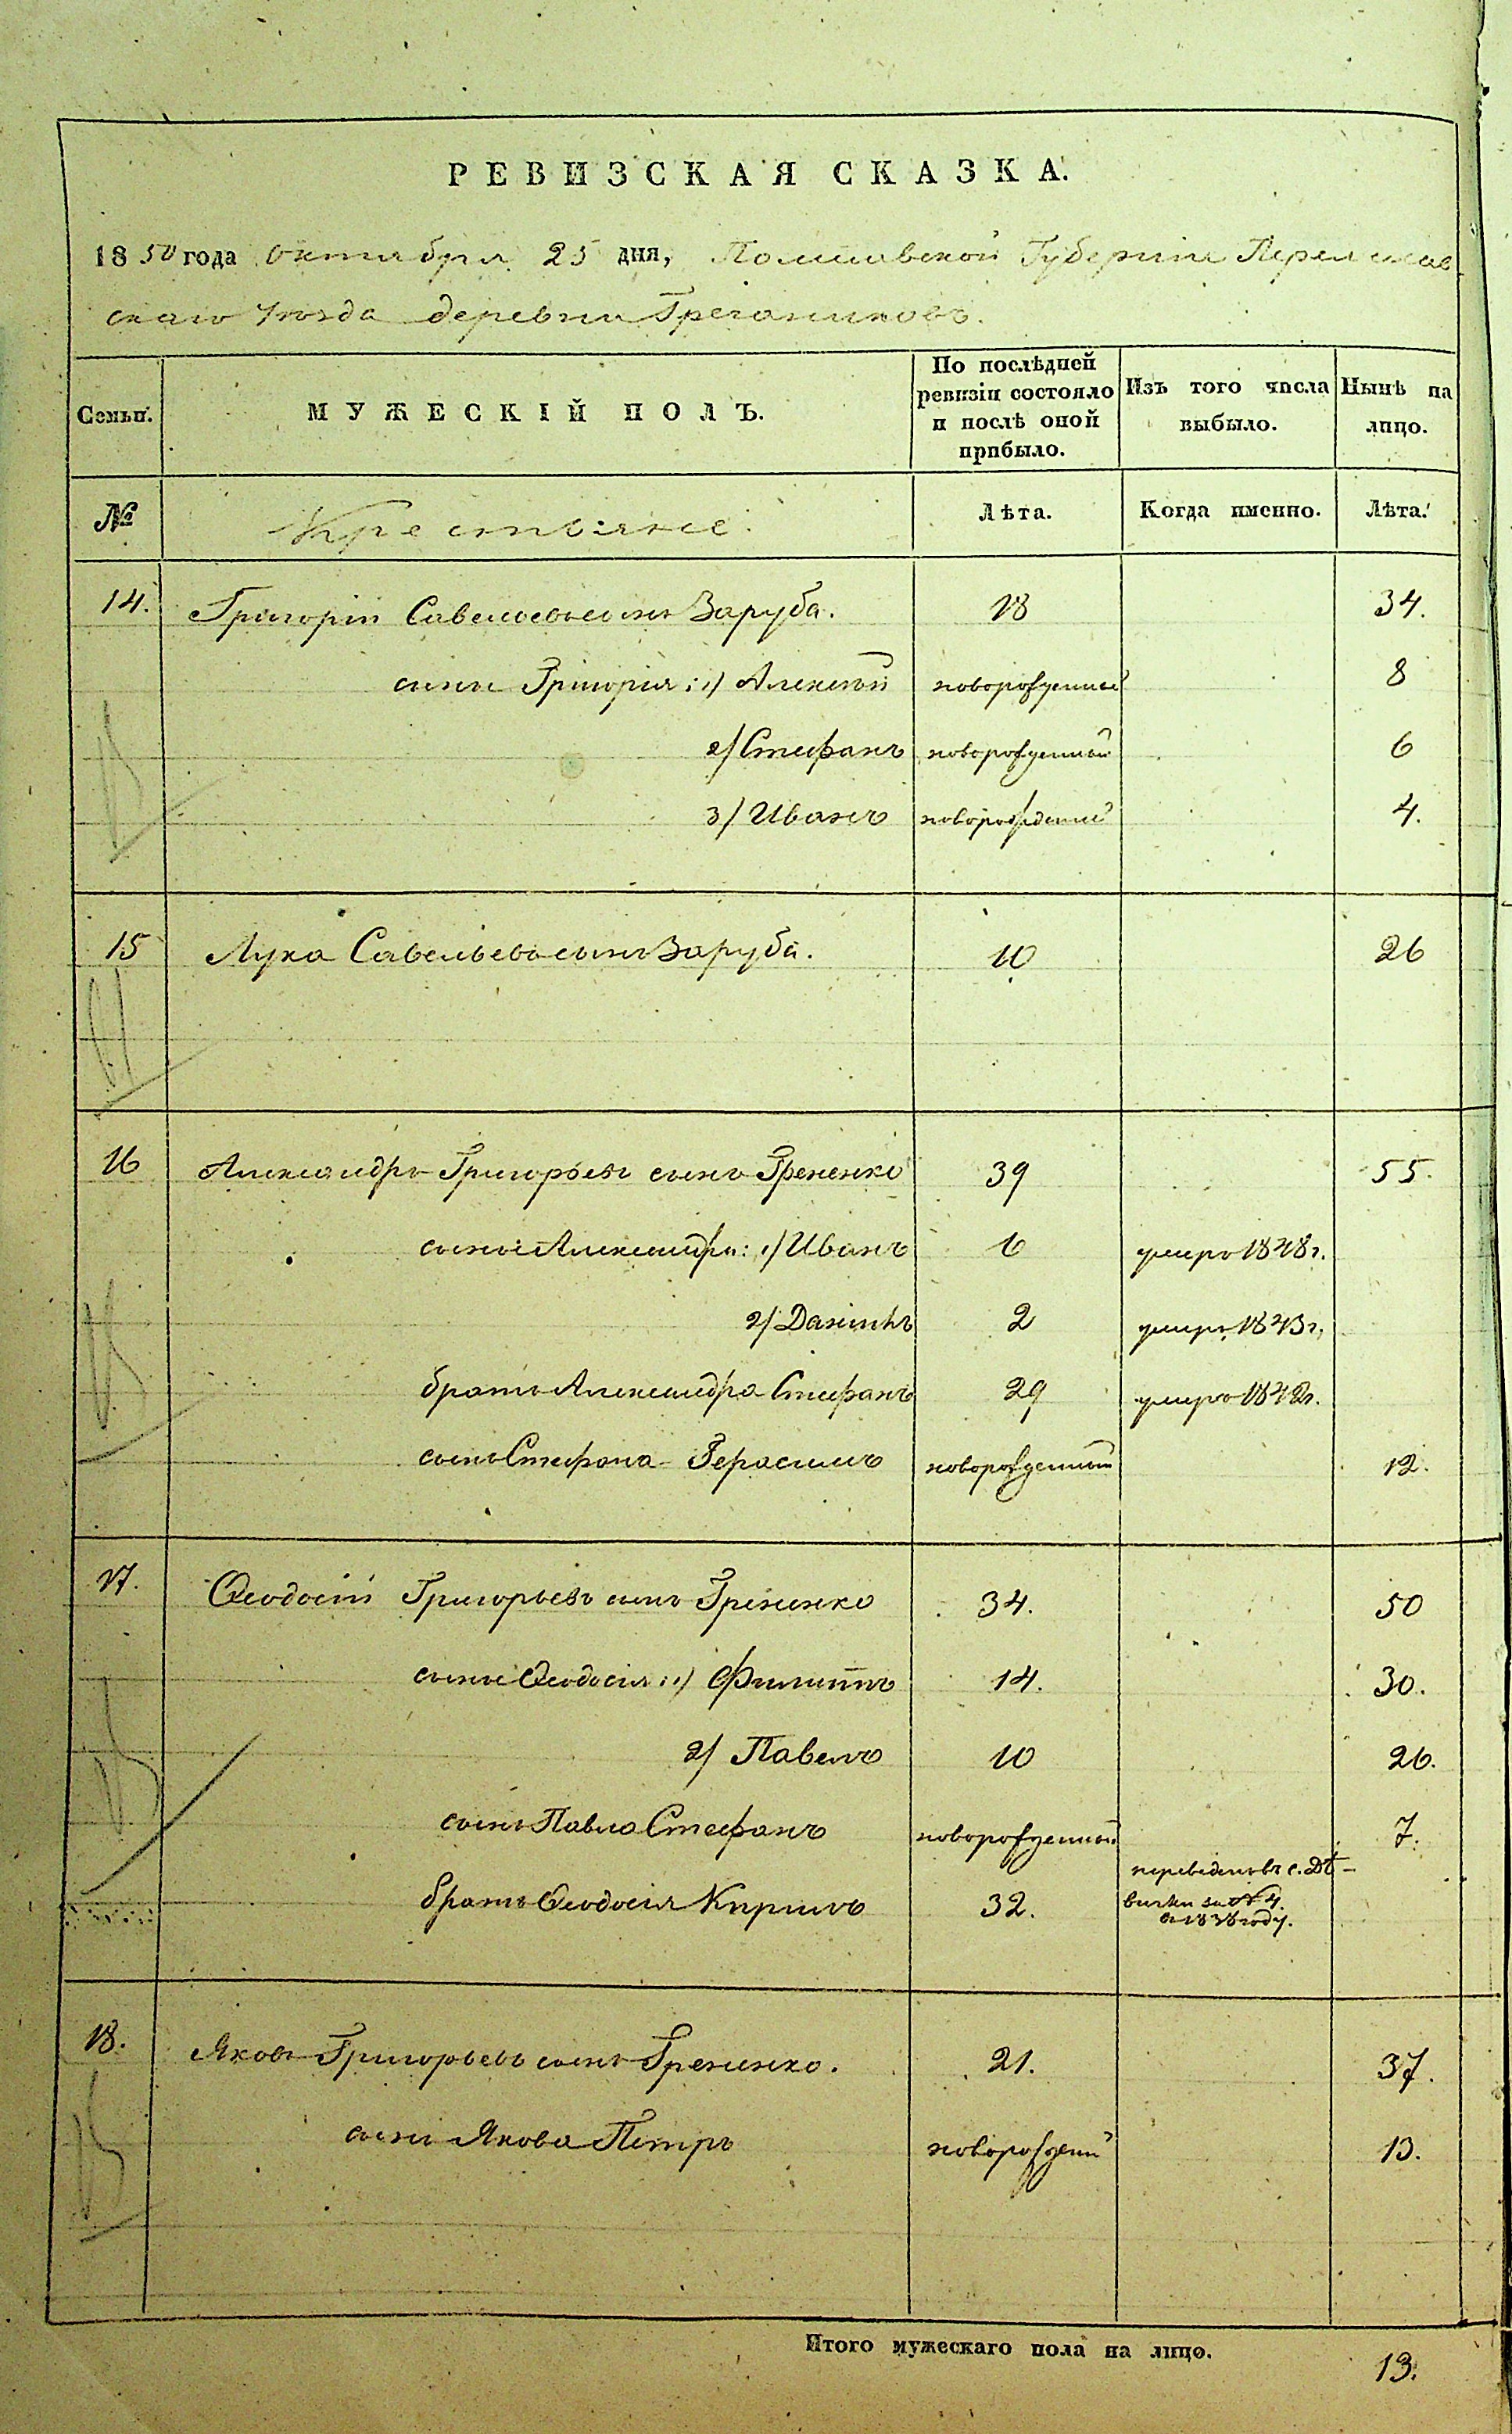 РЕВИЗСКАЯ СКАЗКА.
1850 года октября 25 дня, Полтавской Губерніи Переяслав
скаго уѣзда деревни
Семьи. МУЖЕСКІЙ ПОЛЪ. По послѣдней ревизіи состояло и послѣ оной прибыло. Изъ того числа выбыло. Нынѣ на лицо.
№ Крестьяне. Лѣта. Когда именно. Лѣта.
14. Григорій Савельевъ сынъ Заруба. 18 34.
сыны Григорія: 1) Алексѣй новорожденный 8
2) Стефанъ новорожденный 6
3) Иванъ новорожденный 4.
15 Лука Савельевъ сынъ Заруба. 10 26
16 Александръ Григорьевъ сынъ Грененко 39 55.
сыны Александра: 1) Иванъ 6 умеръ 1848 г.
2) Даніилъ 2 умеръ 1843 г.
братъ Александра Стефанъ 29 умеръ 1842 г.
сынъ Стефана Герасимъ новорожденный 12.
17. Ѳеодосій Григорьевъ сынъ Грененко 34. 50
сыны Ѳеодосія: 1) Филиппъ 14. 30.
2) Павелъ 10 26.
сынъ Павла Стефанъ новорожденный 7.
братъ Ѳеодосія Кирилъ 32. переведенъ въ с. Дѣ-
вички за № 4.
въ 1838 году.
18. Яковъ Григорьевъ сынъ Грененко. 21. 37.
сынъ Якова Петръ новорожденный 13.
Итого мужескаго пола на лицо. 13.